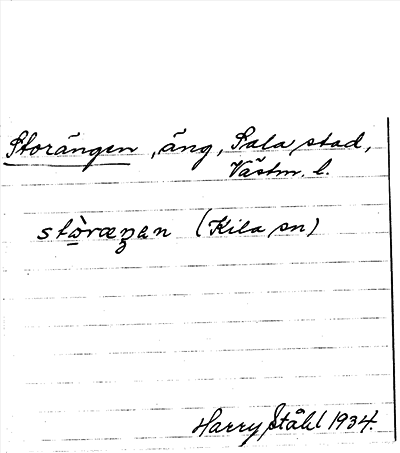 Storängen, äng, Sala stad,
Västm. l.
stòræŋen (Kila sn)
Harry Ståhl 1934.